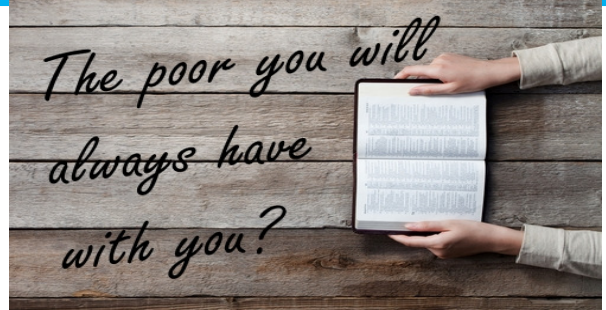 The poor you will
always have
with you?